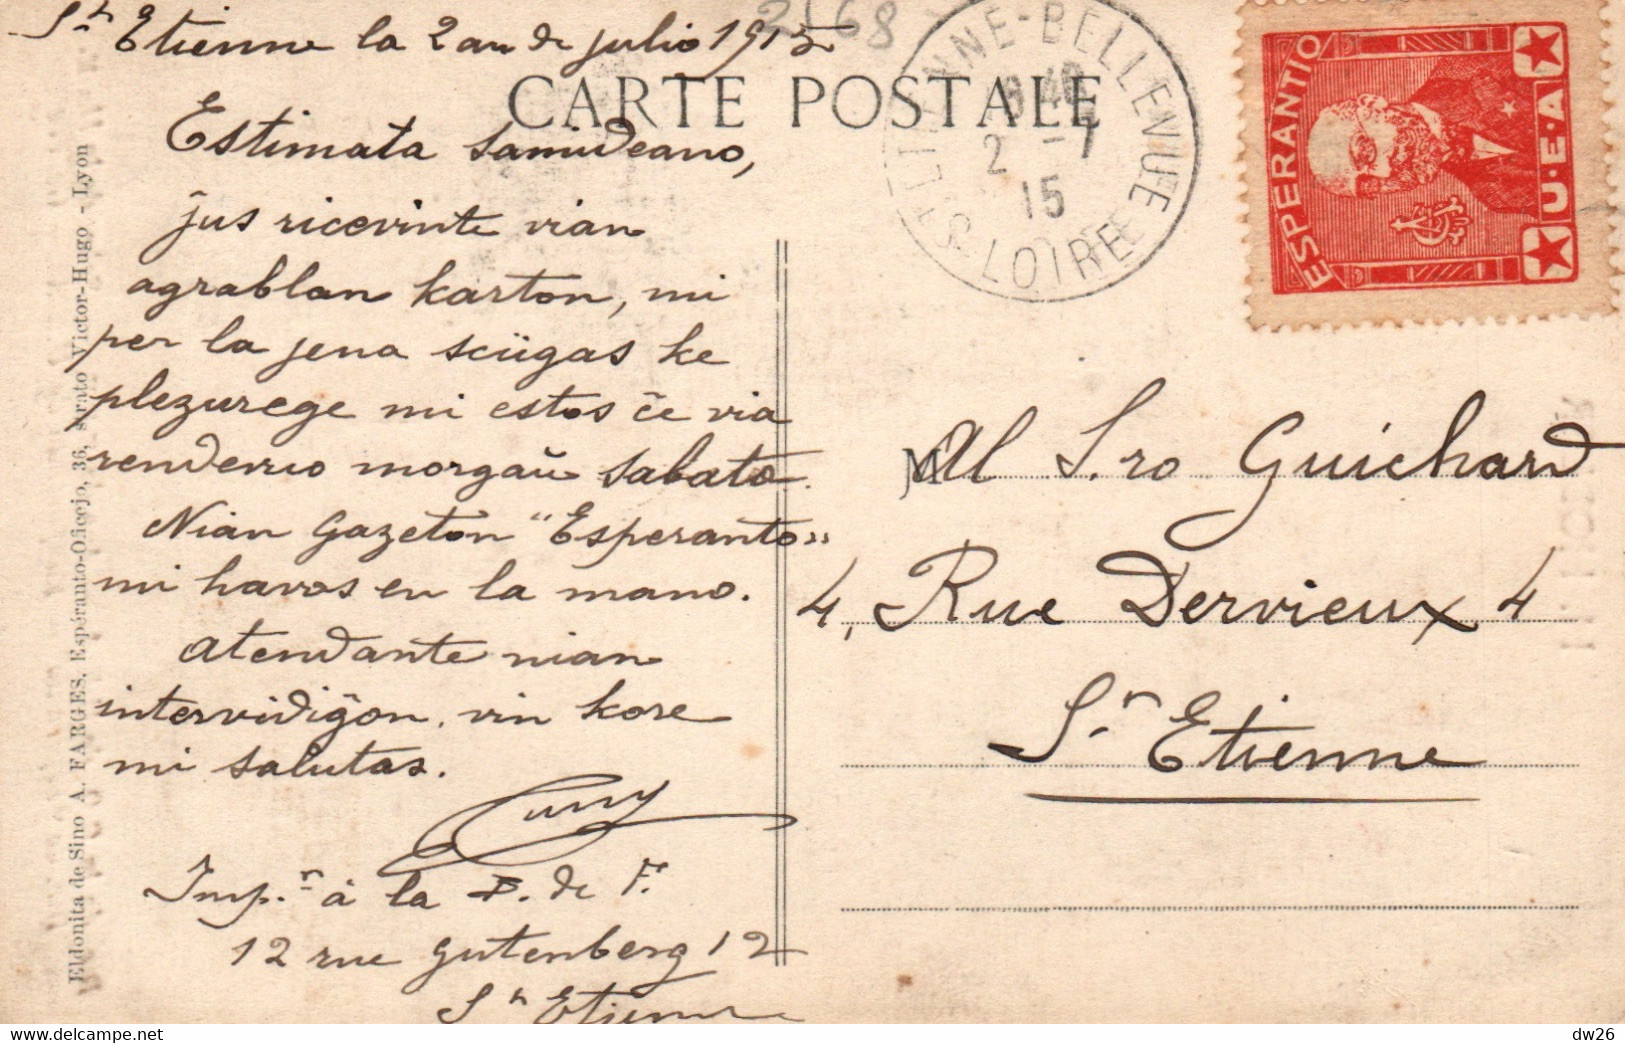 St Etienne la 2an de julio 1915
2168
CARTE POSTALE
Estimata Samideano,
ĵus ricevinte vian
agrablan karton, mi
per la jena sciigas ke
plezurege mi estos ĉe via
rendevuo morgaŭ Sabato.
Nian Gazeton "Esperanto"
mi havos en la mano.
Atendante nian
intervidiĝon, vin kore
mi salutas.
Cuny
Imp.r à la P. de F.
12 rue Gutenberg 12
St Etienne
Eldonita de Sino A. FARGES, Espéranto-Oficejo, 36, strato Victor-Hugo - Lyon
ST ETIENNE-BELLEVUE
9 40
2 -7
15
LOIRE
ESPERANTIO
U·E·A
M
Al S.ro Guichard
4, Rue Dervieux 4
St Etienne
dw26